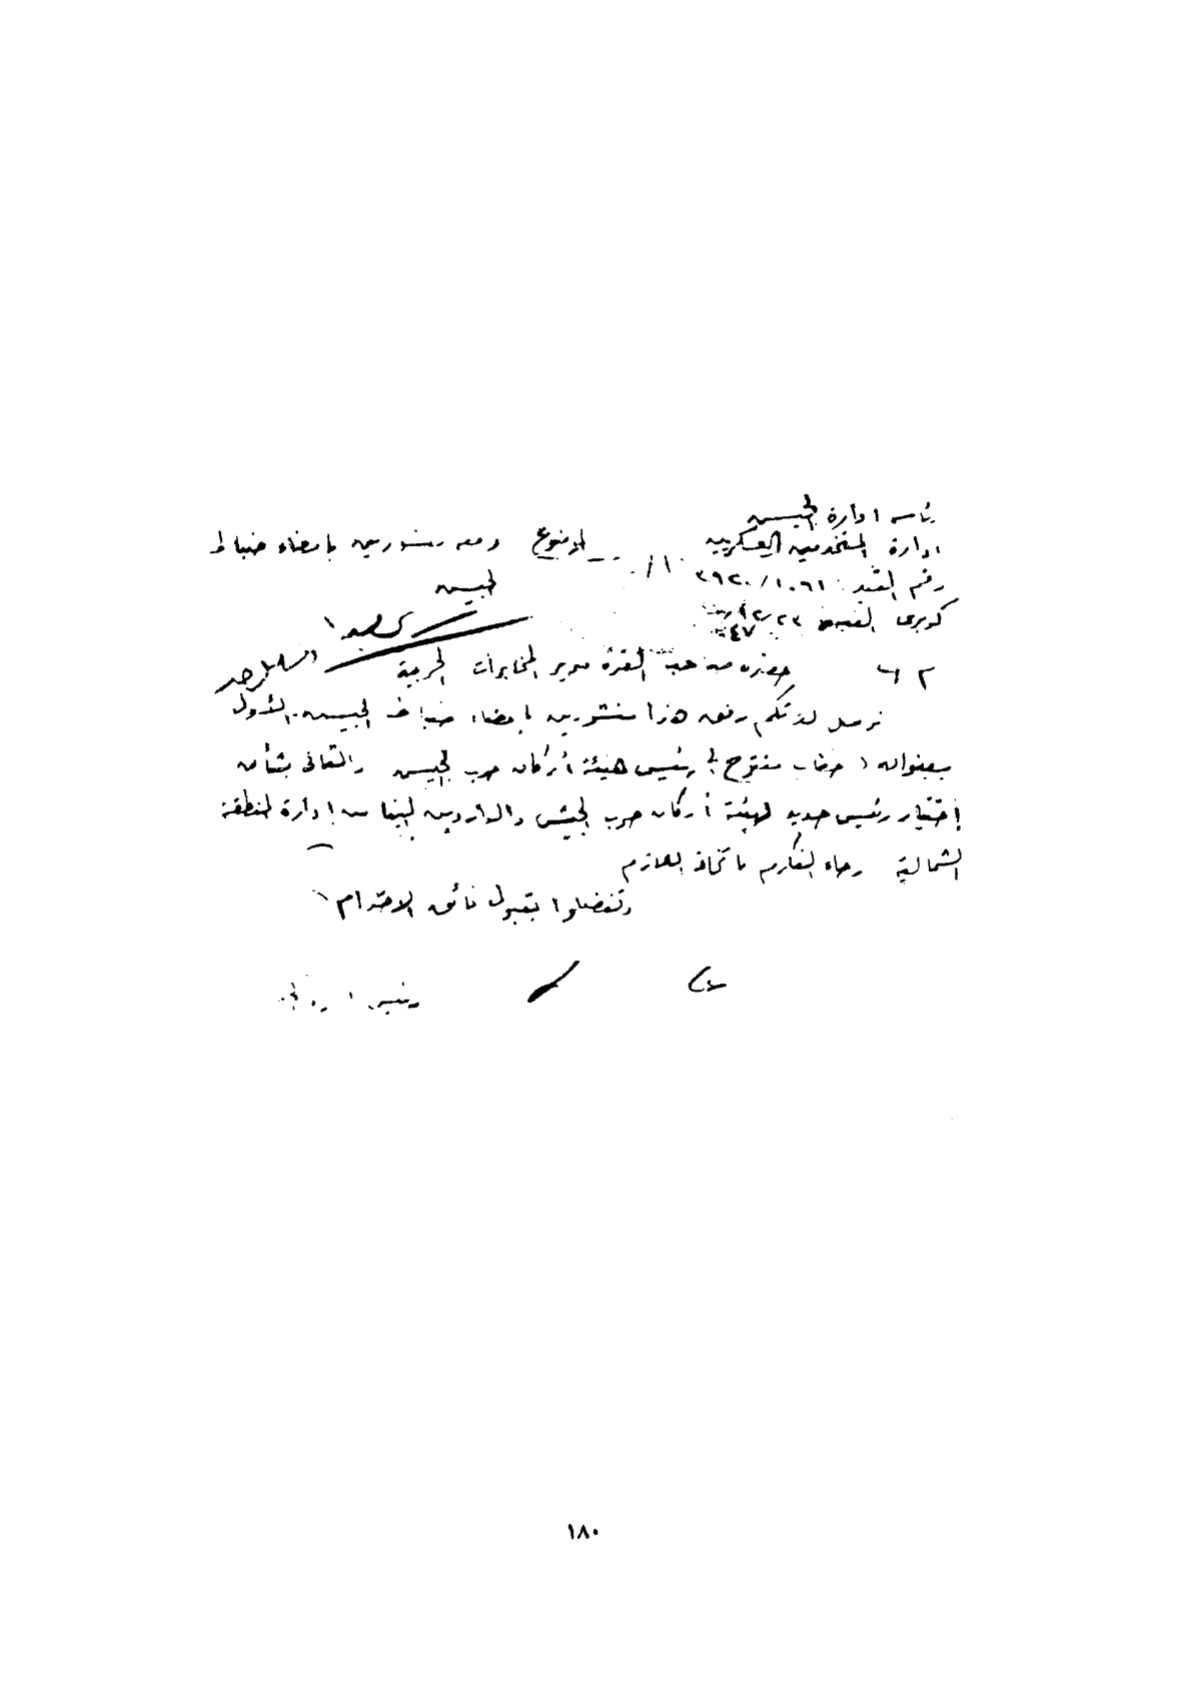 رئاسة ادارة الجيش
ادارة المستخدمين العسكريين
الموضوع ومعه منشورين بامضاء ضباط
الجيش
رقم القيد ٣٩٢٠/١٠٦١
كوبرى القبة ٢٣/١٢ سنة ٤٧
حضرة صاحب العزة مدير المخابرات الحربية
نرسل لعزتكم رفق هذا منشورين بامضاء ضباط الجيش الأول
بعنوان ( خطاب مفتوح الى رئيس هيئة أركان حرب الجيش والثانى بشأن
إختيار رئيس جديد لهيئة أركان حرب الجيش والواردين الينا من إدارة المنطقة
الشمالية رجاء التكرم باتخاذ اللازم
وتفضلوا بقبول فائق الاحترام
رئيس
١٨٠